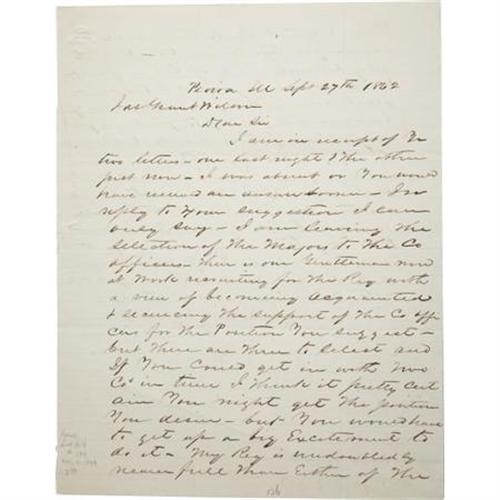 Peoria Ill Sept 27th 1862
Jas Grant Wilson
Dear Sir
I am in receipt of Yr
two letters - one last night & the other
just now - I was absent or You would
have received an answer sooner - In
reply to Your suggestion I can
only say - I am leaving the
selection of the Majors to the Co
officers - there is one Gentleman now
at work recruiting for the Reg with
a view of becoming Acquainted
& securing the support of the Co offi
cers for the Position You suggest -
but there are three to select and
If You could get in with two
Cos in time I think it pretty cert
ain You might get the position
You desire - but You would have
to get up a big Excitement to
do it - My Reg is undoubtedly
nearer full than Either of the